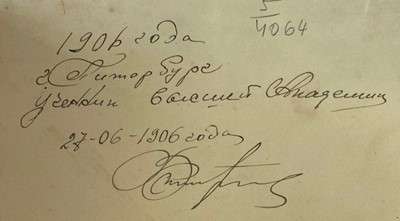 5
4064
1906 года
г Питербург
Ученик высшей Академии
27-06-1906 года